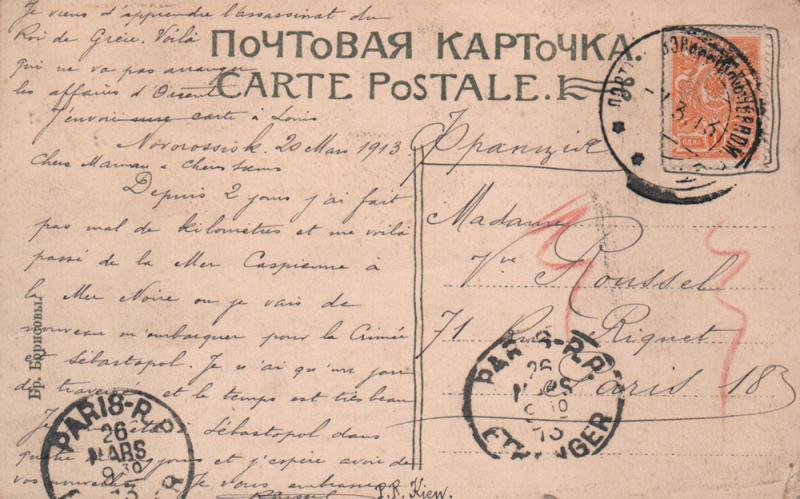 Je viens d'apprendre l'assassinat du
Roi de Grèce. Voilà
qui ne va pas arranger
les affaires d'Orient
J'envoie une carte à Louis
ПОЧТОВАЯ КАРТОЧКА.
CARTE POSTALE.
Novorossisk. 20 Mars 1913
Chère Maman & Chères Sœurs
Depuis 2 jours j'ai fait
pas mal de kilomètres et me voilà
passé de la Mer Caspienne à
la Mer Noire ou je vais de
nouveau m'embarquer pour la Crimée
et Sébastopol. Je n'ai qu'un jour
de traversée et le temps est très beau
Je à Sébastopol dans
quatre jours et j'espère avoir de
vos nouvelles Je vous embrasse
Франція
Madame
Vve Roussel
71 Rue Riquet
Paris 18
ОДНА
1.3.13
PARIS-R.P.
26
MARS
9 30
13
ETRANGER
PARIS-R.P.
26
MARS
9 30
Бр. Борисовы.
P. R. Kiew.